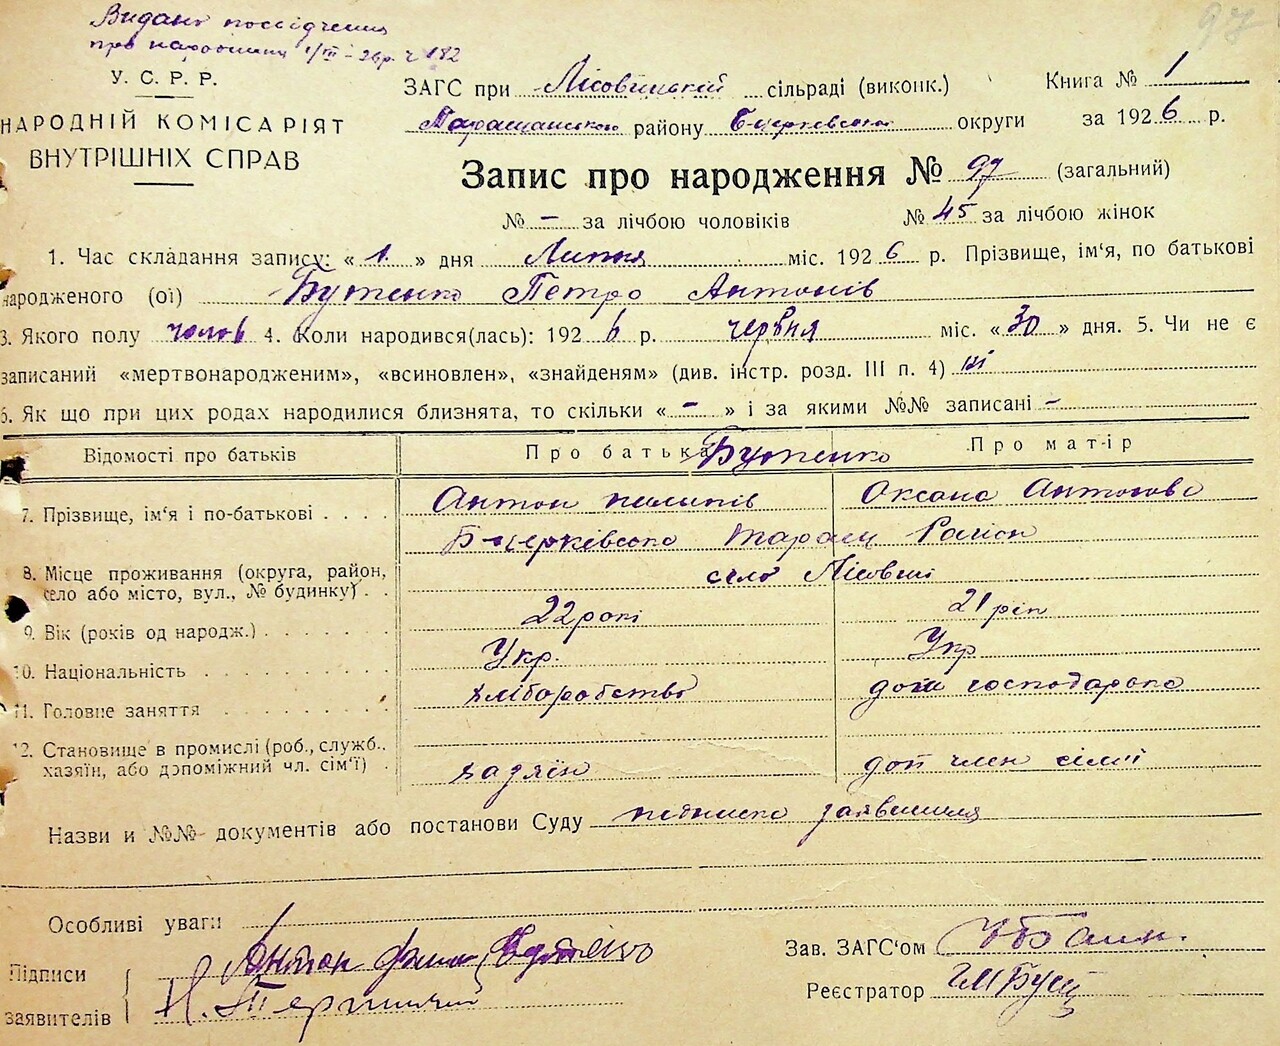 97
Видано посвідчення
про народження 1/III-26р. ч 182
У. С. Р. Р.
НАРОДНІЙ КОМІСАРІЯТ
ВНУТРІШНІХ СПРАВ
ЗАГС при Лісовицькій сільраді (виконк.) Книга № 1
Таращанського району Б.церківської округи за 1926 р.
Запис про народження № 97 (загальний)
№ – за лічбою чоловіків № 45 за лічбою жінок
1. Час складання запису: « 1 » дня Липня міс. 1926 р. Прізвище, ім‘я, по батькові
народженого (ої) Бутенко Петро Антонів
3. Якого полу чолов 4. Коли народився(лась): 1926 р. червня міс. «30» дня. 5. Чи не є
записаний «мертвонародженим», «всиновлен», «знайденям» (див. інстр. розд. III п. 4) ні
6. Як що при цих родах народилися близнята, то скільки « – » і за якими №№ записані –
Відомості про батьків Про батька Бутенко Про матір
7. Прізвище, ім‘я і по-батькові Антон пилипів Оксана Антонова
Б-церківсько Таращ Район
8. Місце проживання (округа, район, село Лісовичі
село або місто, вул., № будинку)
9. Вік (років од народж.) 22 роки 21 рік
10. Національність Укр. Укр
11. Головне заняття хліборобство дом господарка
12. Становище в промислі (роб., служб.,
хазяїн, або допоміжний чл. сім‘ї) хазяїн доп член сім'ї
Назви и №№ документів або постанови Суду подписка заявителя
Особливі уваги
Підписи Антон Бутенко Зав. ЗАГС‘ом
заявителів Реєстратор